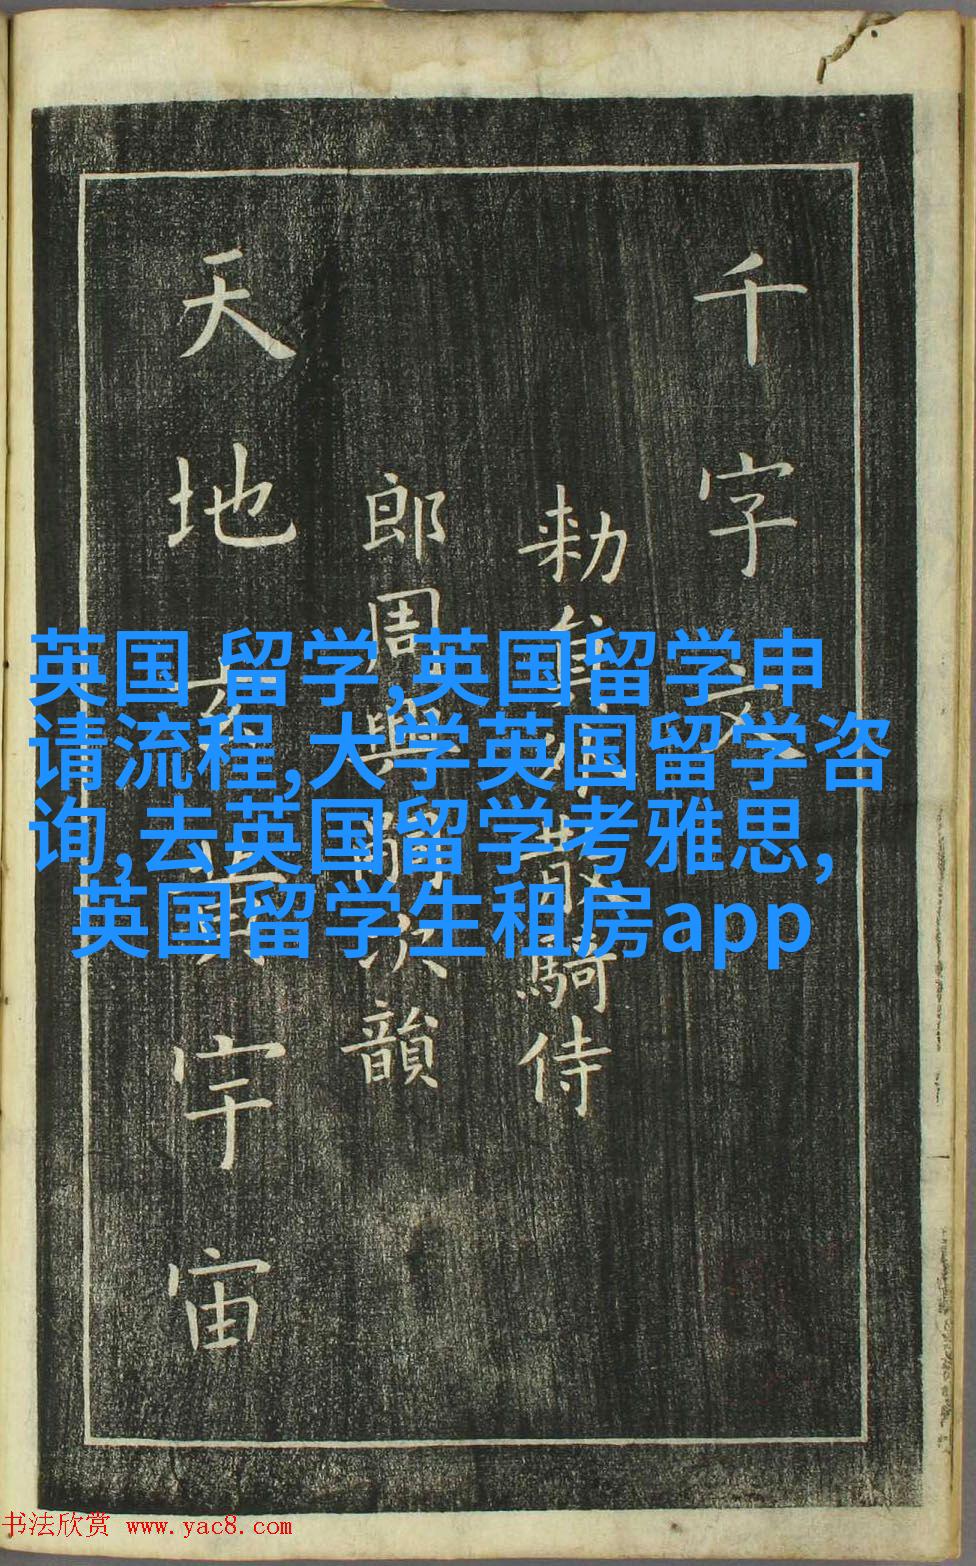 千字文
勑貟外散騎侍
郎周興嗣次韻
天地玄黃宇宙
英国 留学,英国留学申
请流程,大学英国留学咨
询,去英国留学考雅思,
英国留学生租房app
书法欣赏 www.yac8.com